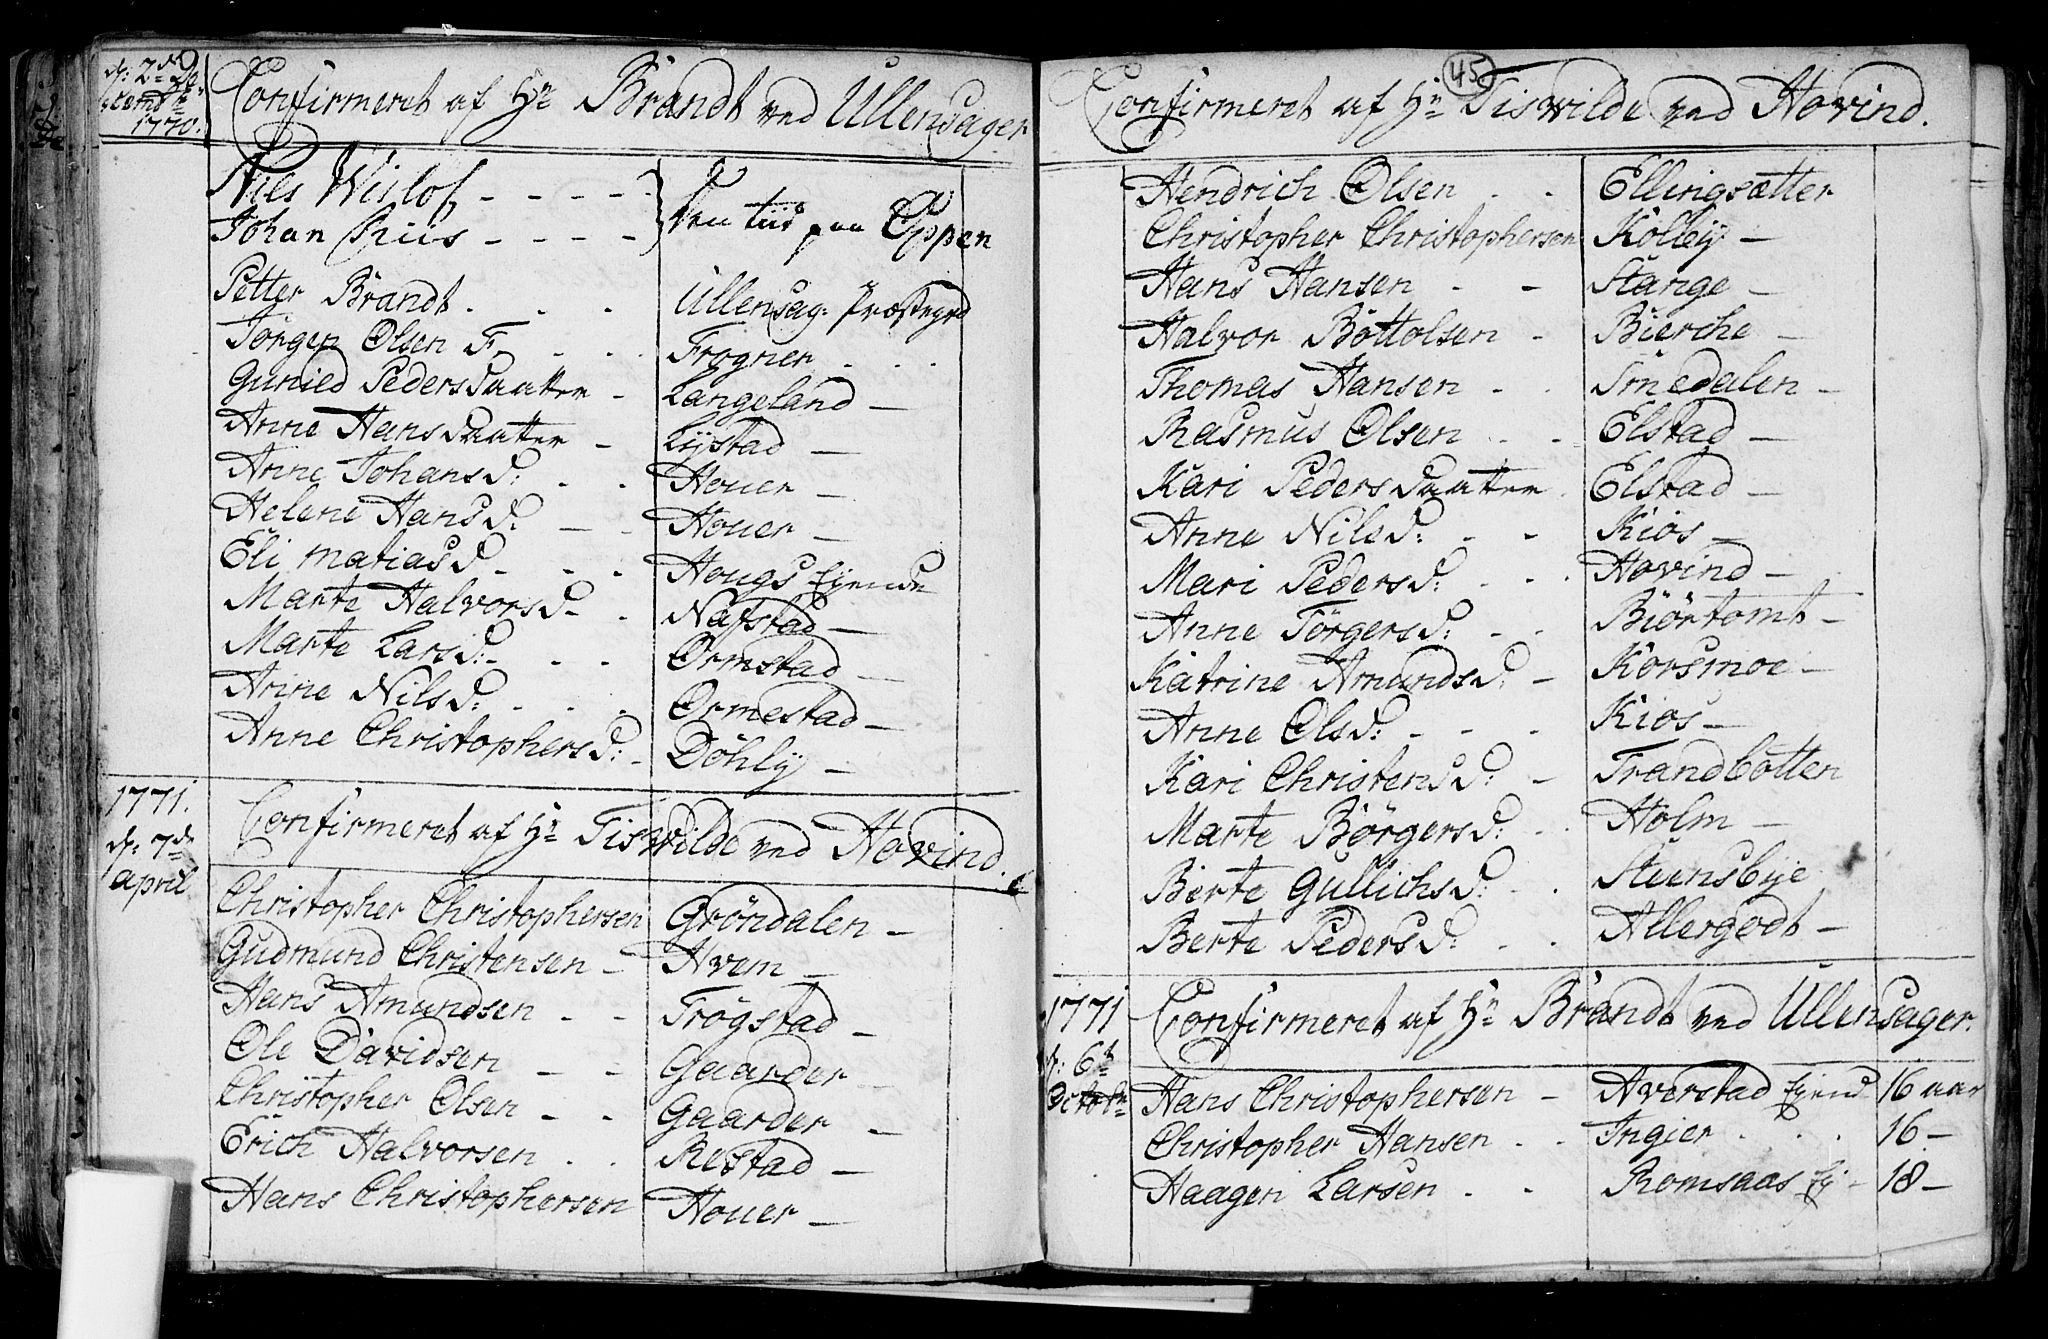 d: 2de De
cembr:
1770.
Confirmeret af Hr Brandt ved Ullensager
Nils Wislof - - - -
Johan Riis - - - - } den tiid paa Eppen
Petter Brandt . . . Ullensag: Præstegrd
Jørgen Olsen F. . . . Frogner . . .
Gunild Pedersdaatter - Langeland -
Anne Hansdaatter - Lÿstad -
Anne Johansd: . . Houer -
Helene Hansd: - - Houer -
Eli Matiasd - - - Hougs Eyende
Marte Halvorsd - . Nafstad -
Marte Larsd: - - - Ormstad -
Anne Nilsd: . . . Ormestad -
Anne Christophersd: - Döhlÿ -
1771.
d: 7de
april
Confirmeret af Hr Tiswilde ved Hovind.
Christopher Christophersen Gröndalen -
Gudmund Christensen - Hvem -
Hans Amundsen - - Trögstad -
Ole Davidsen - - Gaarder -
Christopher Olsen - - Gaarder -
Erich Halvorsen . . Restad -
Hans Christophersen Houer -
45.
Confirmeret af Hr Tiswilde ved Hovind.
Hendrich Olsen . . Ellingsætter
Christopher Christophersen Kolleÿ -
Hans Hansen - - Stange -
Halvor Bottolsen - Bierche -
Thomas Hansen - . Smedalen -
Rasmus Olsen . . Elstad -
Kari Pedersdaatter . Elstad -
Anne Nilsd: - - Kios -
Mari Pedersd: - - . Hovind -
Anne Törgersd: - . Biörtomt -
Katrine Amundsd: - Korsmoe -
Anne Olsd: - - . Kios -
Kari Christensd: - Trandbotten
Marte Börgersd: . . Holm -
Berte Gullichsd: . . Steensbÿe
Berte Pedersd: . . Allergodt -
1771
d: 6te
Octobr
Confirmeret af Hr Brandt ved Ullensager.
Hans Christophersen - Averstad Eyend 16 aar
Christopher Hansen . . Ingier . . . 16 -
Haagen Larsen . . Romsaas Ey - 18 -